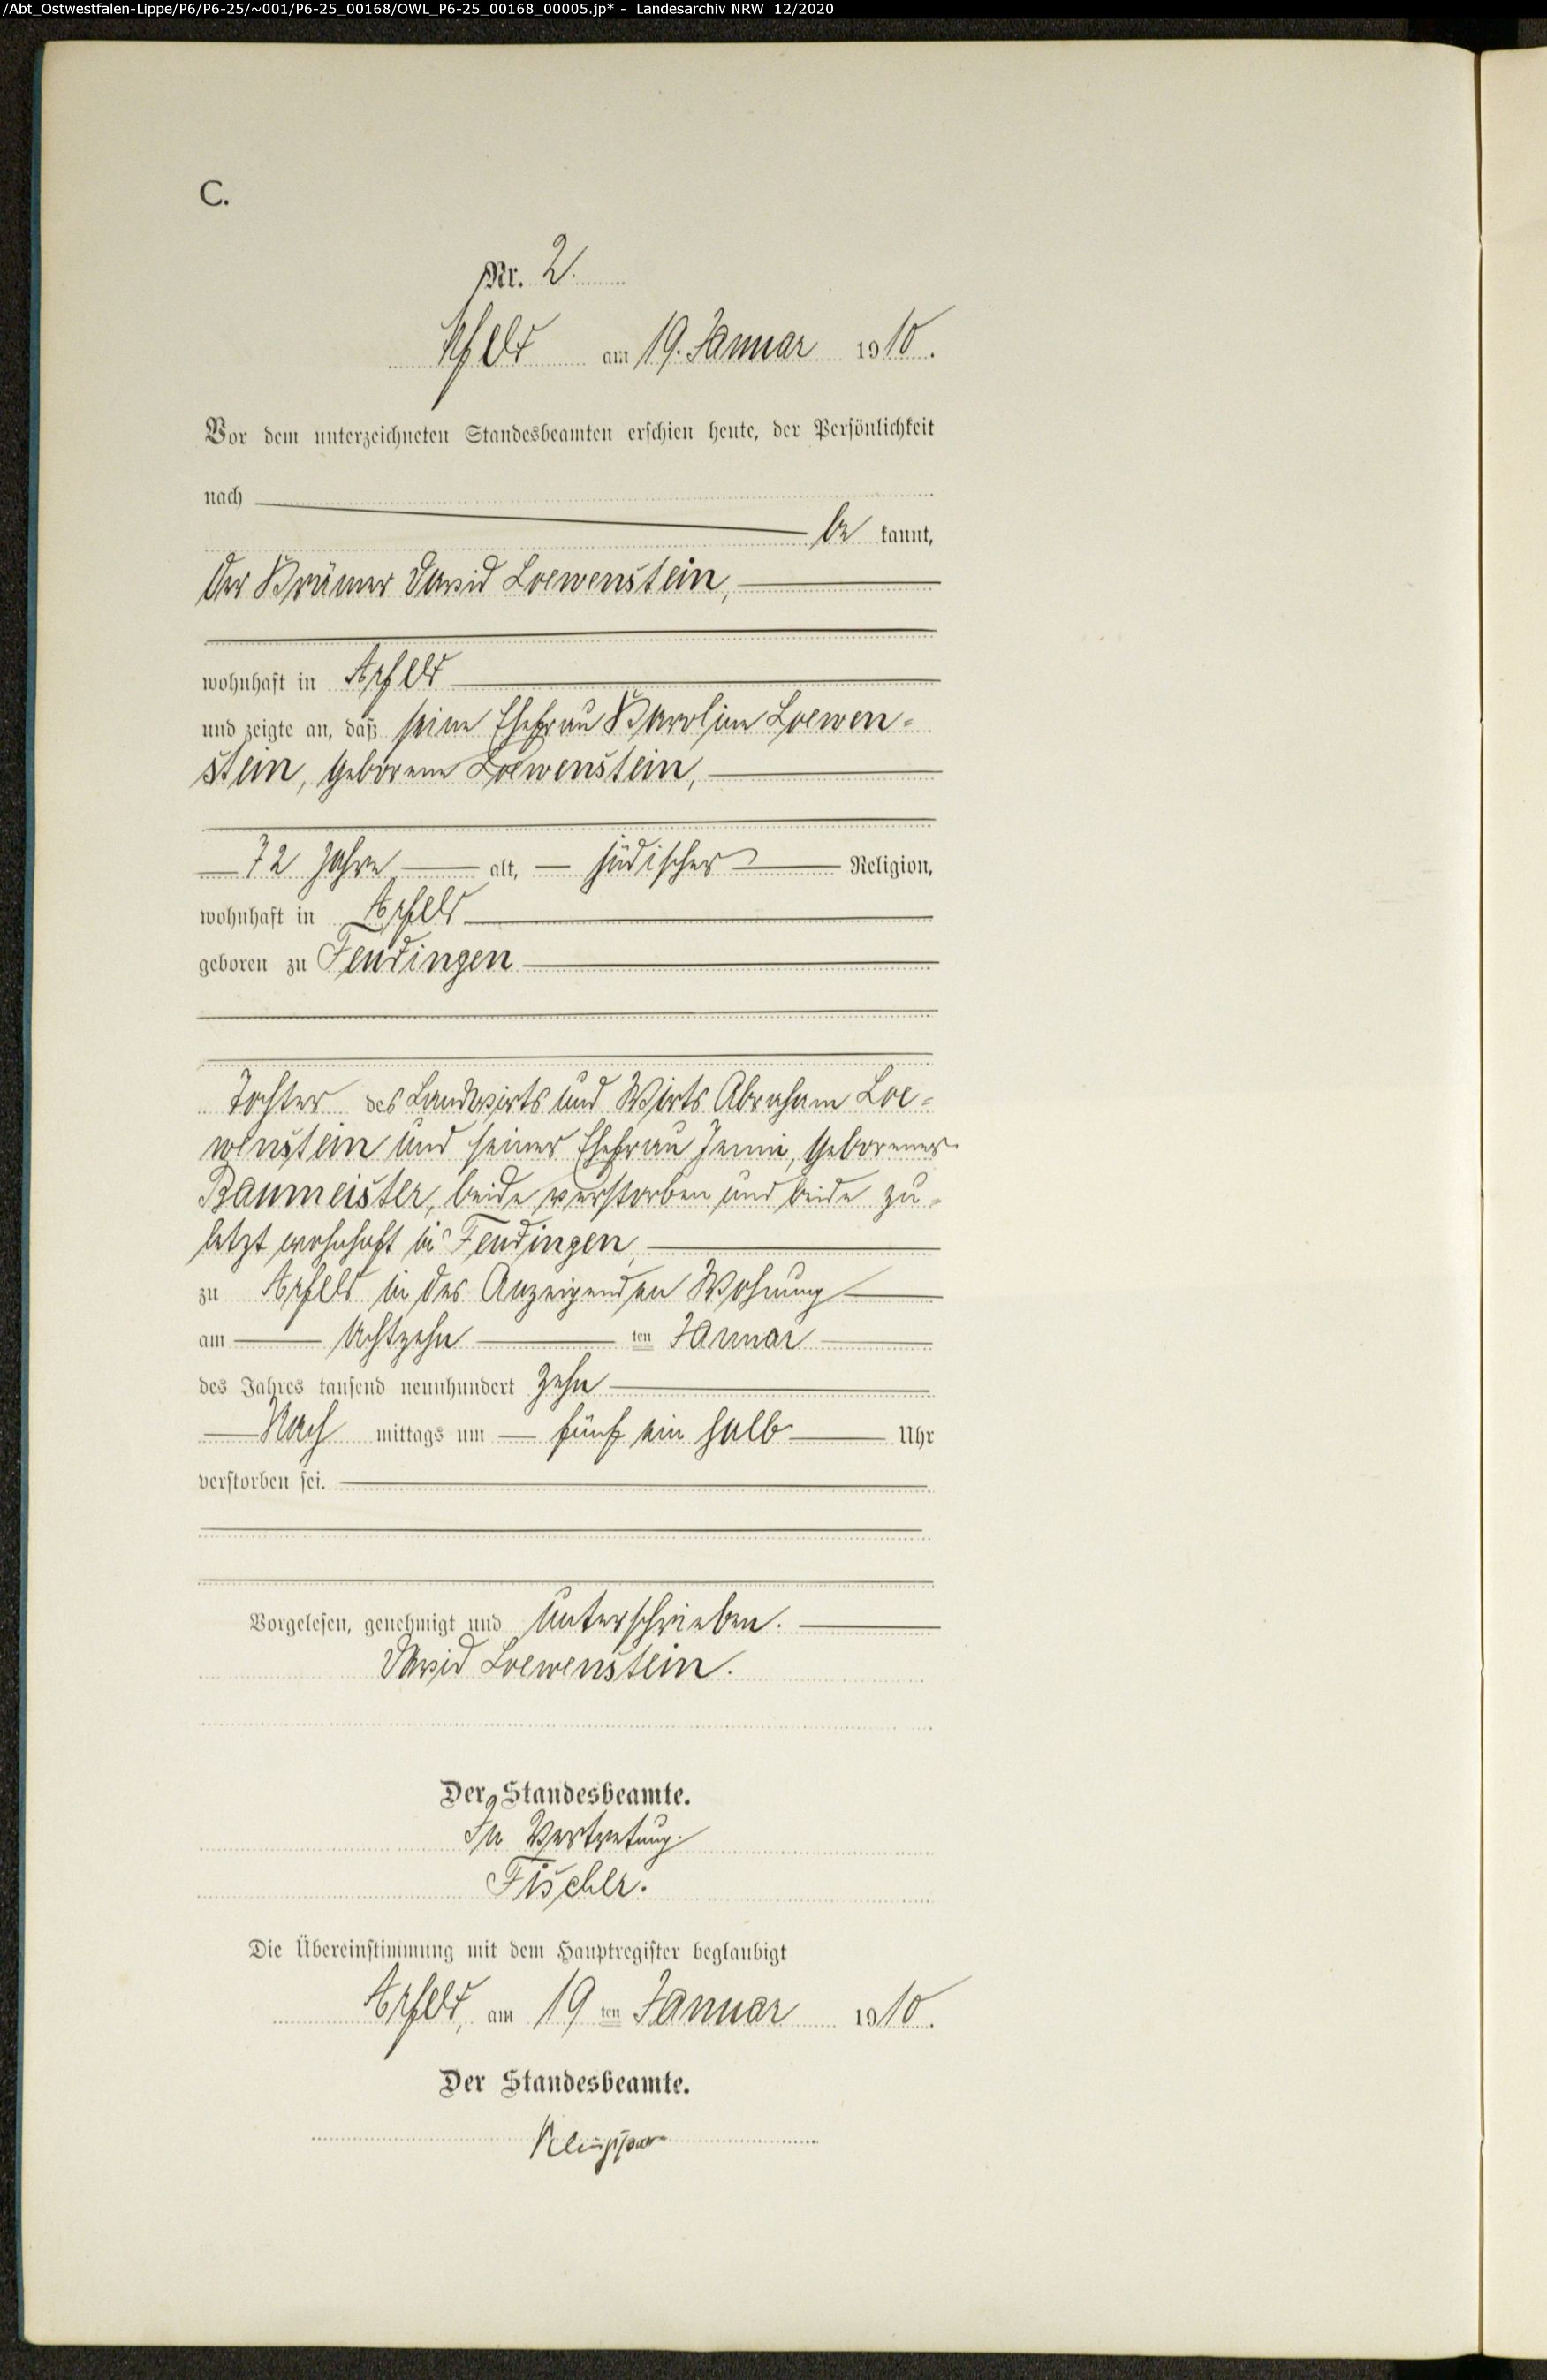 /Abt_Ostwestfalen-Lippe/P6/P6-25/~001/P6-25_00168/OWL_P6-25_00168_00005.jp* - Landesarchiv NRW 12/2020
C.
Nr. 2.
Arfeld am 19. Januar 1910.
Vor dem unterzeichneten Standesbeamten erschien heute, der Persönlichkeit
nach
be kannt,
der Krämer David Loewenstein,
wohnhaft in Arfeld
und zeigte an, daß seine Ehefrau Karoline Loewen=
stein, geborene Loewenstein,
72 Jahre alt, jüdischer Religion,
wohnhaft in Arfeld
geboren zu Feudingen
Tochter des Landwirts und Wirts Abraham Loe=
wenstein und seiner Ehefrau Jenni, geborener
Baumeister, beide verstorben und beide zu=
letzt wohnhaft in Feudingen,
zu Arfeld in des Anzeigenden Wohnung
am achtzehn ten Januar
des Jahres tausend neunhundert zehn
Nach mittags um fünf ein halb Uhr
verstorben sei.
Vorgelesen, genehmigt und unterschrieben.
David Loewenstein.
Der Standesbeamte.
In Vertretung.
Fischer.
Die Übereinstimmung mit dem Hauptregister beglaubigt
Arfeld, am 19 ten Januar 1910.
Der Standesbeamte.